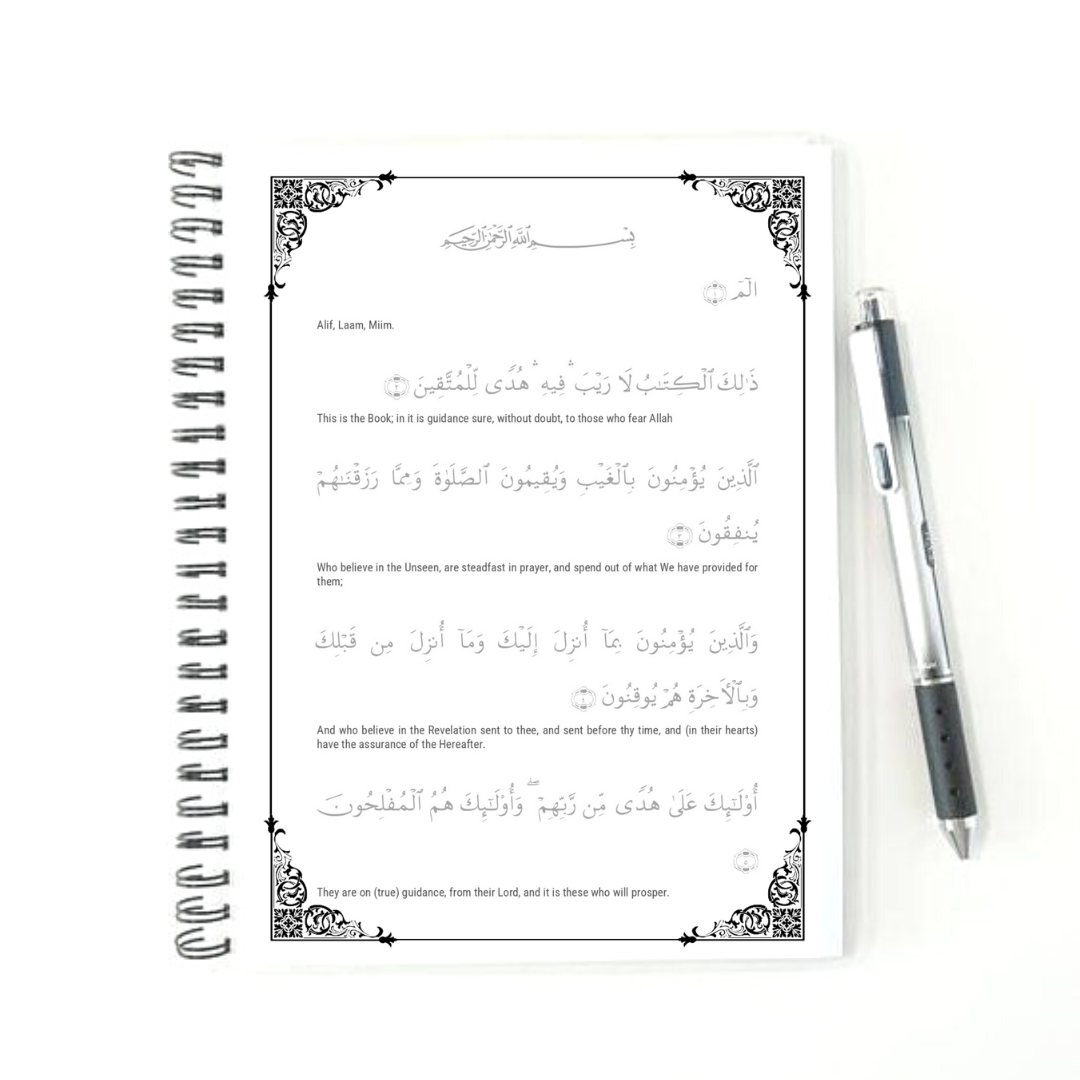 بِسْمِ ٱللَّهِ ٱلرَّحْمَٰنِ ٱلرَّحِيمِ
الٓمٓ ١
Alif, Laam, Miim.
ذَٰلِكَ ٱلْكِتَٰبُ لَا رَيْبَ ۛ فِيهِ ۛ هُدًى لِّلْمُتَّقِينَ ٢
This is the Book; in it is guidance sure, without doubt, to those who fear Allah
ٱلَّذِينَ يُؤْمِنُونَ بِٱلْغَيْبِ وَيُقِيمُونَ ٱلصَّلَوٰةَ وَمِمَّا رَزَقْنَٰهُمْ
يُنفِقُونَ ٣
Who believe in the Unseen, are steadfast in prayer, and spend out of what We have provided for
them;
وَٱلَّذِينَ يُؤْمِنُونَ بِمَآ أُنزِلَ إِلَيْكَ وَمَآ أُنزِلَ مِن قَبْلِكَ
وَبِٱلْأَخِرَةِ هُمْ يُوقِنُونَ ٤
And who believe in the Revelation sent to thee, and sent before thy time, and (in their hearts)
have the assurance of the Hereafter.
أُو۟لَٰٓئِكَ عَلَىٰ هُدًى مِّن رَّبِّهِمْ ۖ وَأُو۟لَٰٓئِكَ هُمُ ٱلْمُفْلِحُونَ
٥
They are on (true) guidance, from their Lord, and it is these who will prosper.